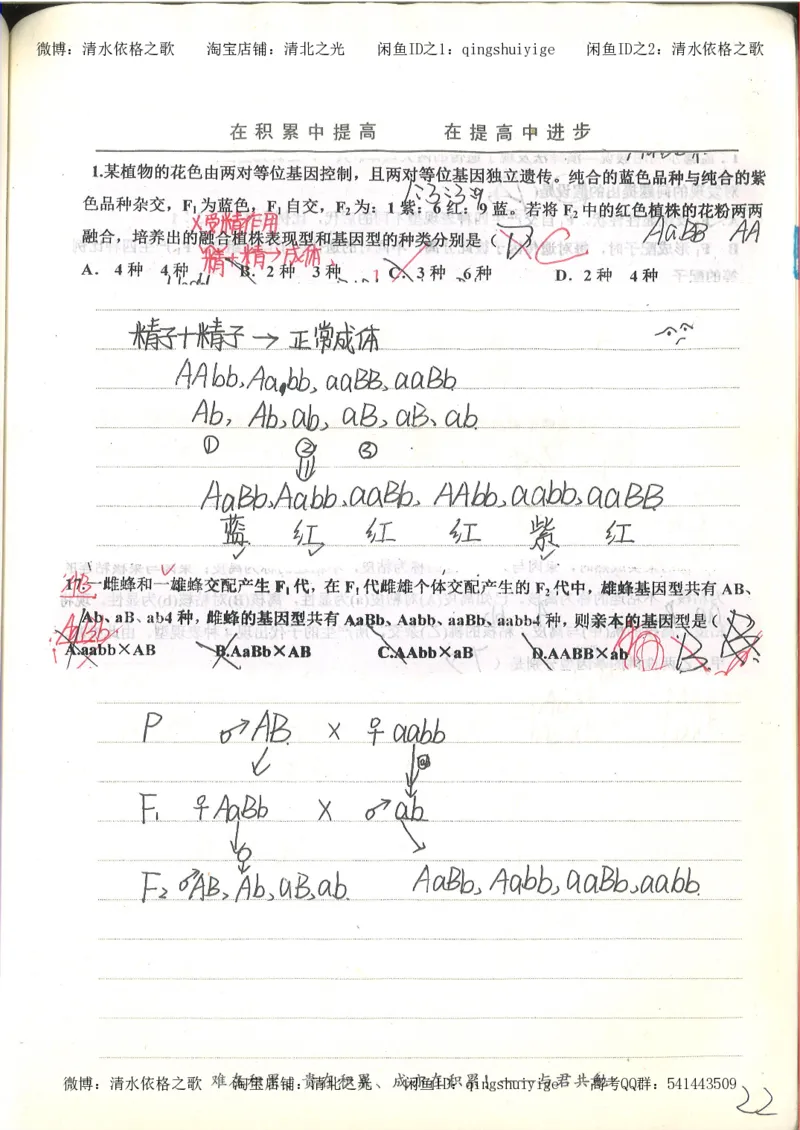 微博：清水依格之歌 淘宝店铺：清北之光 闲鱼ID之1：qingshuiyige 闲鱼ID之2：清水依格之歌
在积累中提高 在提高中进步
1.某植物的花色由两对等位基因控制，且两对等位基因独立遗传。纯合的蓝色品种与纯合的紫
1:3:3:9
色品种杂交，F₁为蓝色，F₁自交，F₂为：1紫：6红：9蓝。若将F₂中的红色植株的花粉两两
X受精作用
AaBB AA
融合，培养出的融合植株表现型和基因型的种类分别是（D） C
精+精→成体
A. 4种 4种 B. 2种 3种 C. 3种 6种 D. 2种 4种
精子+精子→正常成体
AAbb,Aabb,aaBB,aaBb
Ab, Ab,ab, aB,aB、ab
① ② ③
AaBb,Aabb,aaBb,AAbb,aabb,aaBB
蓝 红 红 红 紫 红
17.一雌蜂和一雄蜂交配产生F₁代，在F₁代雌雄个体交配产生的F₂代中，雄蜂基因型共有AB、
Ab、aB、ab4种，雌蜂的基因型共有AaBb、Aabb、aaBb、aabb4种，则亲本的基因型是（
AaBb
A.aabb×AB B.AaBb×AB C.AAbb×aB D.AABB×ab A B
P ♂AB × ♀aabb
F₁ ♀AaBb × ♂ab
F₂ ♂AB, Ab,aB,ab. AaBb, Aabb,aaBb,aabb
微博：清水依格之歌 淘宝店铺：清北之光 闲鱼ID：qingshuiyige 高考QQ群：541443509
难在积累、贵在积累、成亦在积累！——与君共勉
22